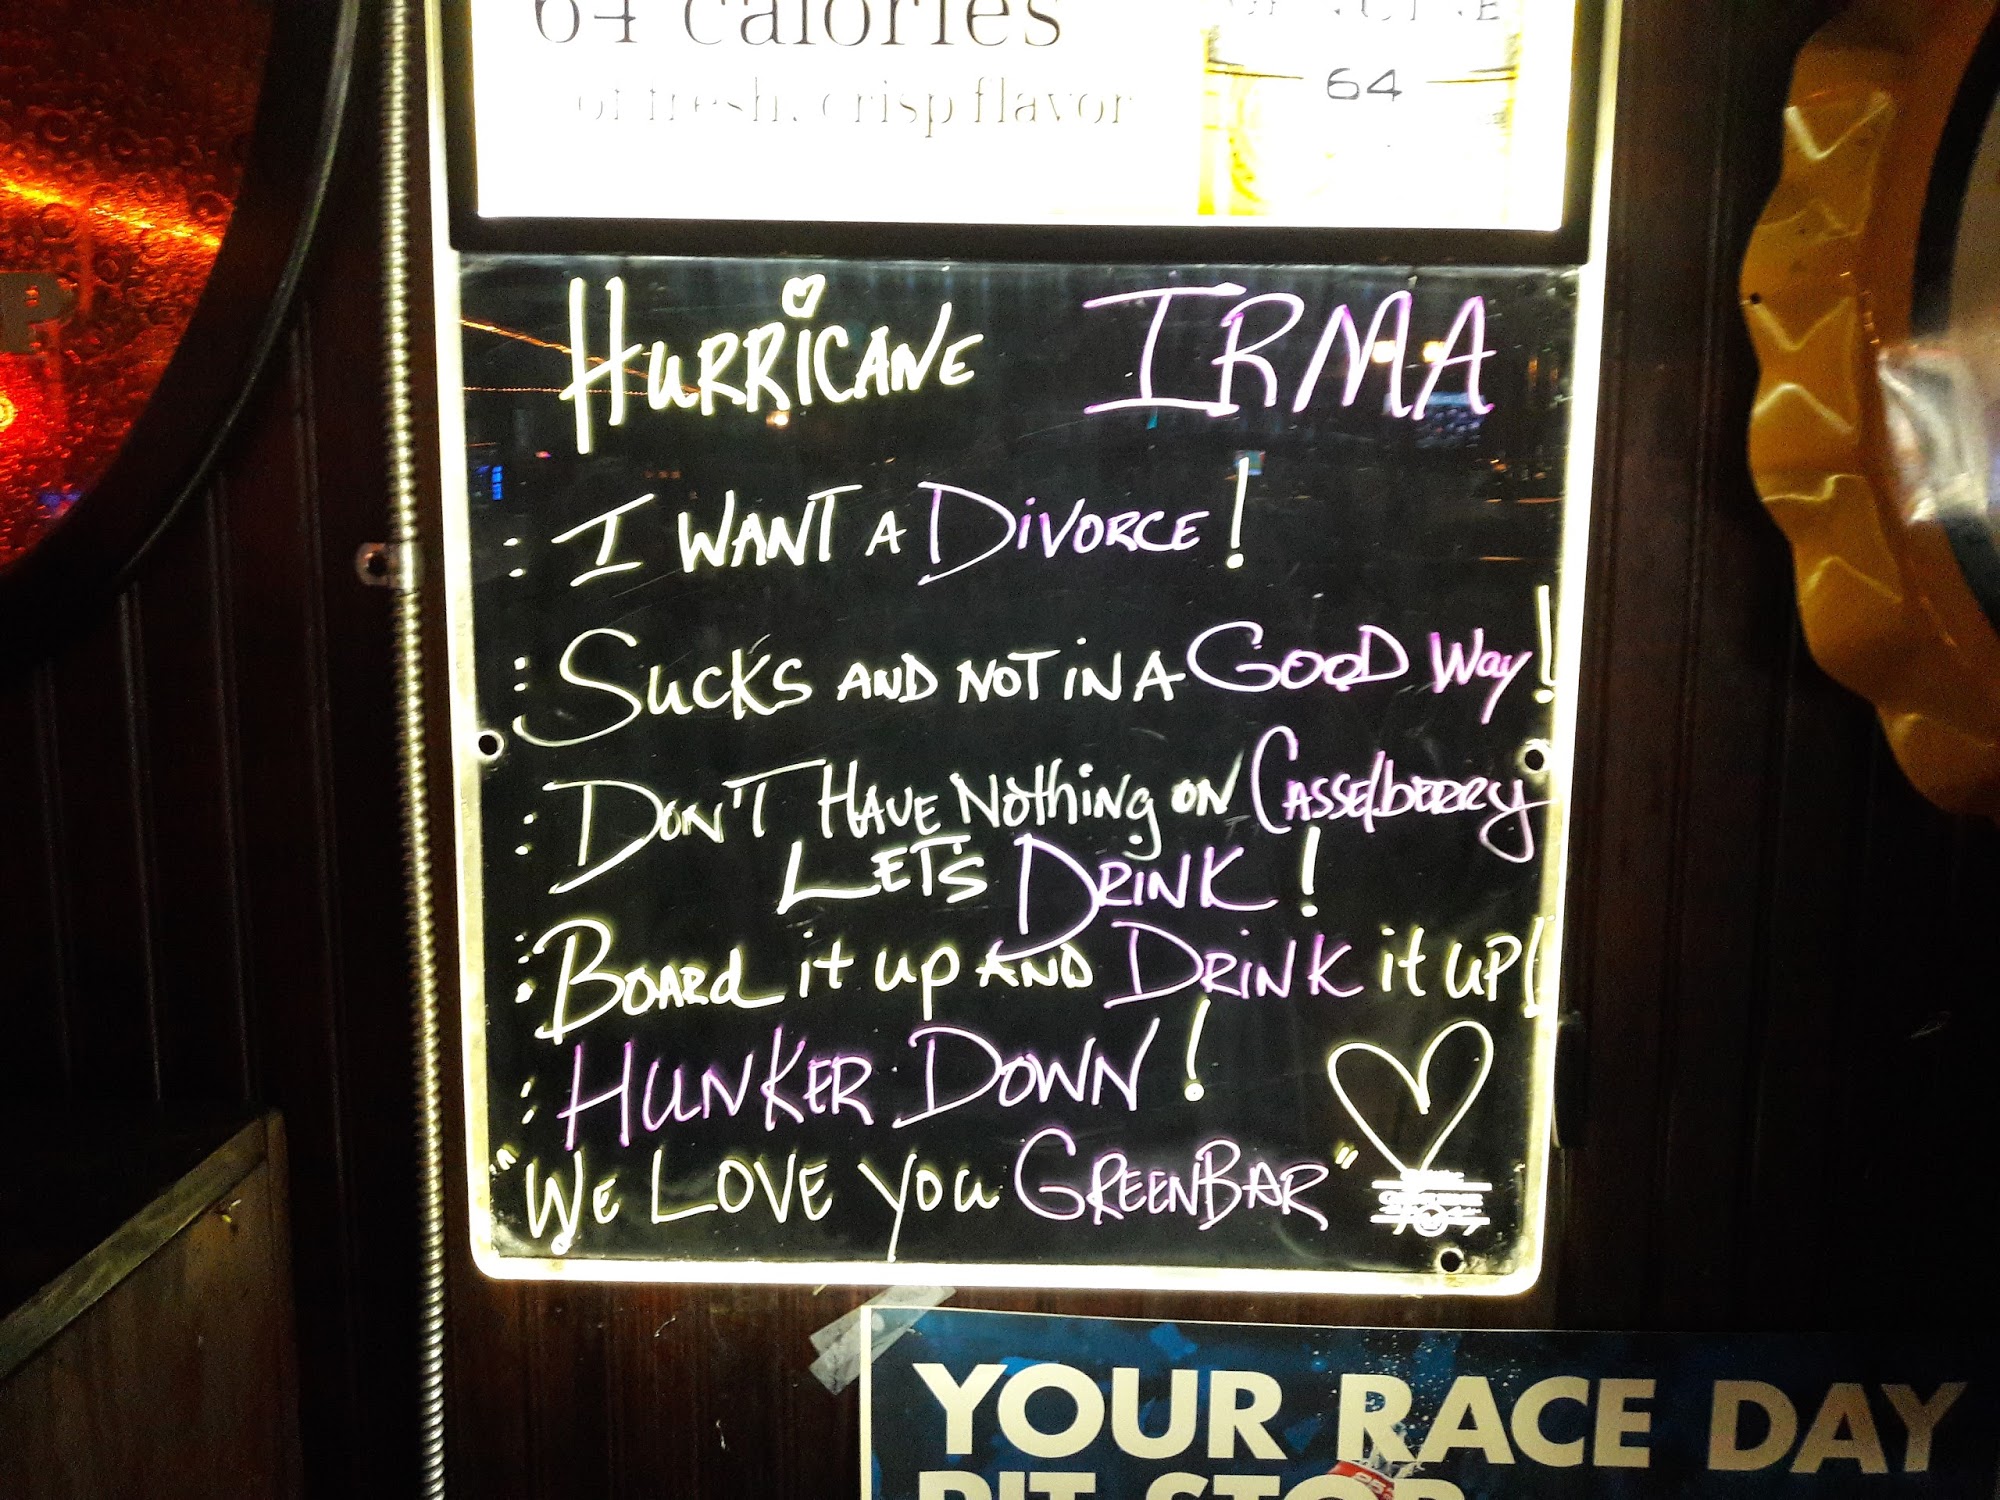 64 calories
of fresh, crisp flavor
64
HURRICANE IRMA
: I WANT A DIVORCE!
: SUCKS AND NOT IN A GOOD Way!
: DON'T HAVE NOthING ON CASSELBERRY
LET'S DRINK!
: BOARd it up AND DRINK it UP!
: HUNKER DOWN!
"WE LOVE YOU GREENBAR"
YOUR RACE DAY
PIT STOP